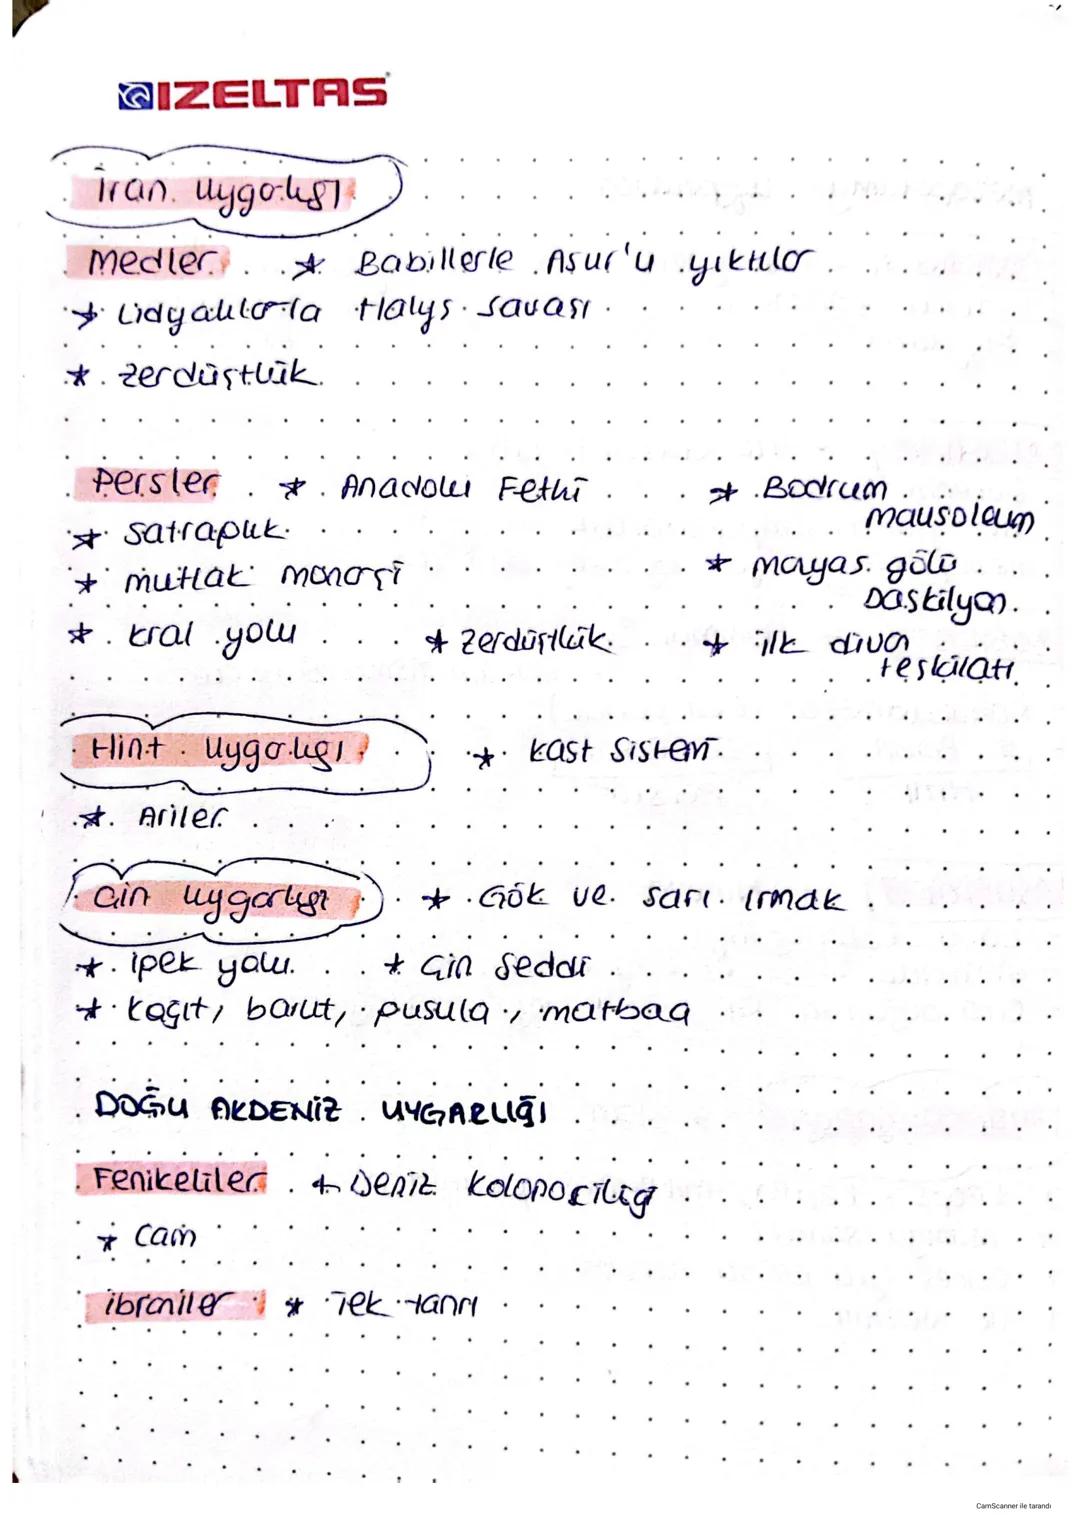 IZELTAS
İran uygarlığı
Medler * Babillerle Asur'u yıktılar
* Lidyalılarla Halys savası
* zerdüştlük
Persler * Anadolu Fethi
* satraplık
* mutlak monarşi
* kral yolu * zerdüştlük
* Bodrum mausoleum
* manyas gölü Daskilyon
* ilk divan teşkilatı
Hint uygarlığı * kast sistemi
* Ariler
Çin uygarlığı * Gök ve sarı ırmak
* ipek yolu * Çin Seddi
* kağıt, barut, pusula, matbaa
DOĞU AKDENİZ UYGARLIĞI
Fenikeliler * Deniz koloniciliği
* cam
ibraniler * Tek tanrı
CamScanner ile tarandı